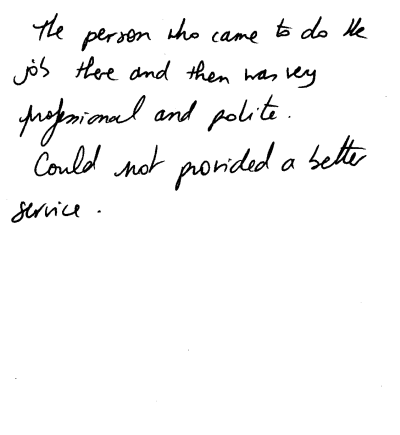 The person who came to do the
job there and then was very
professional and polite.
Could not provided a better
service.